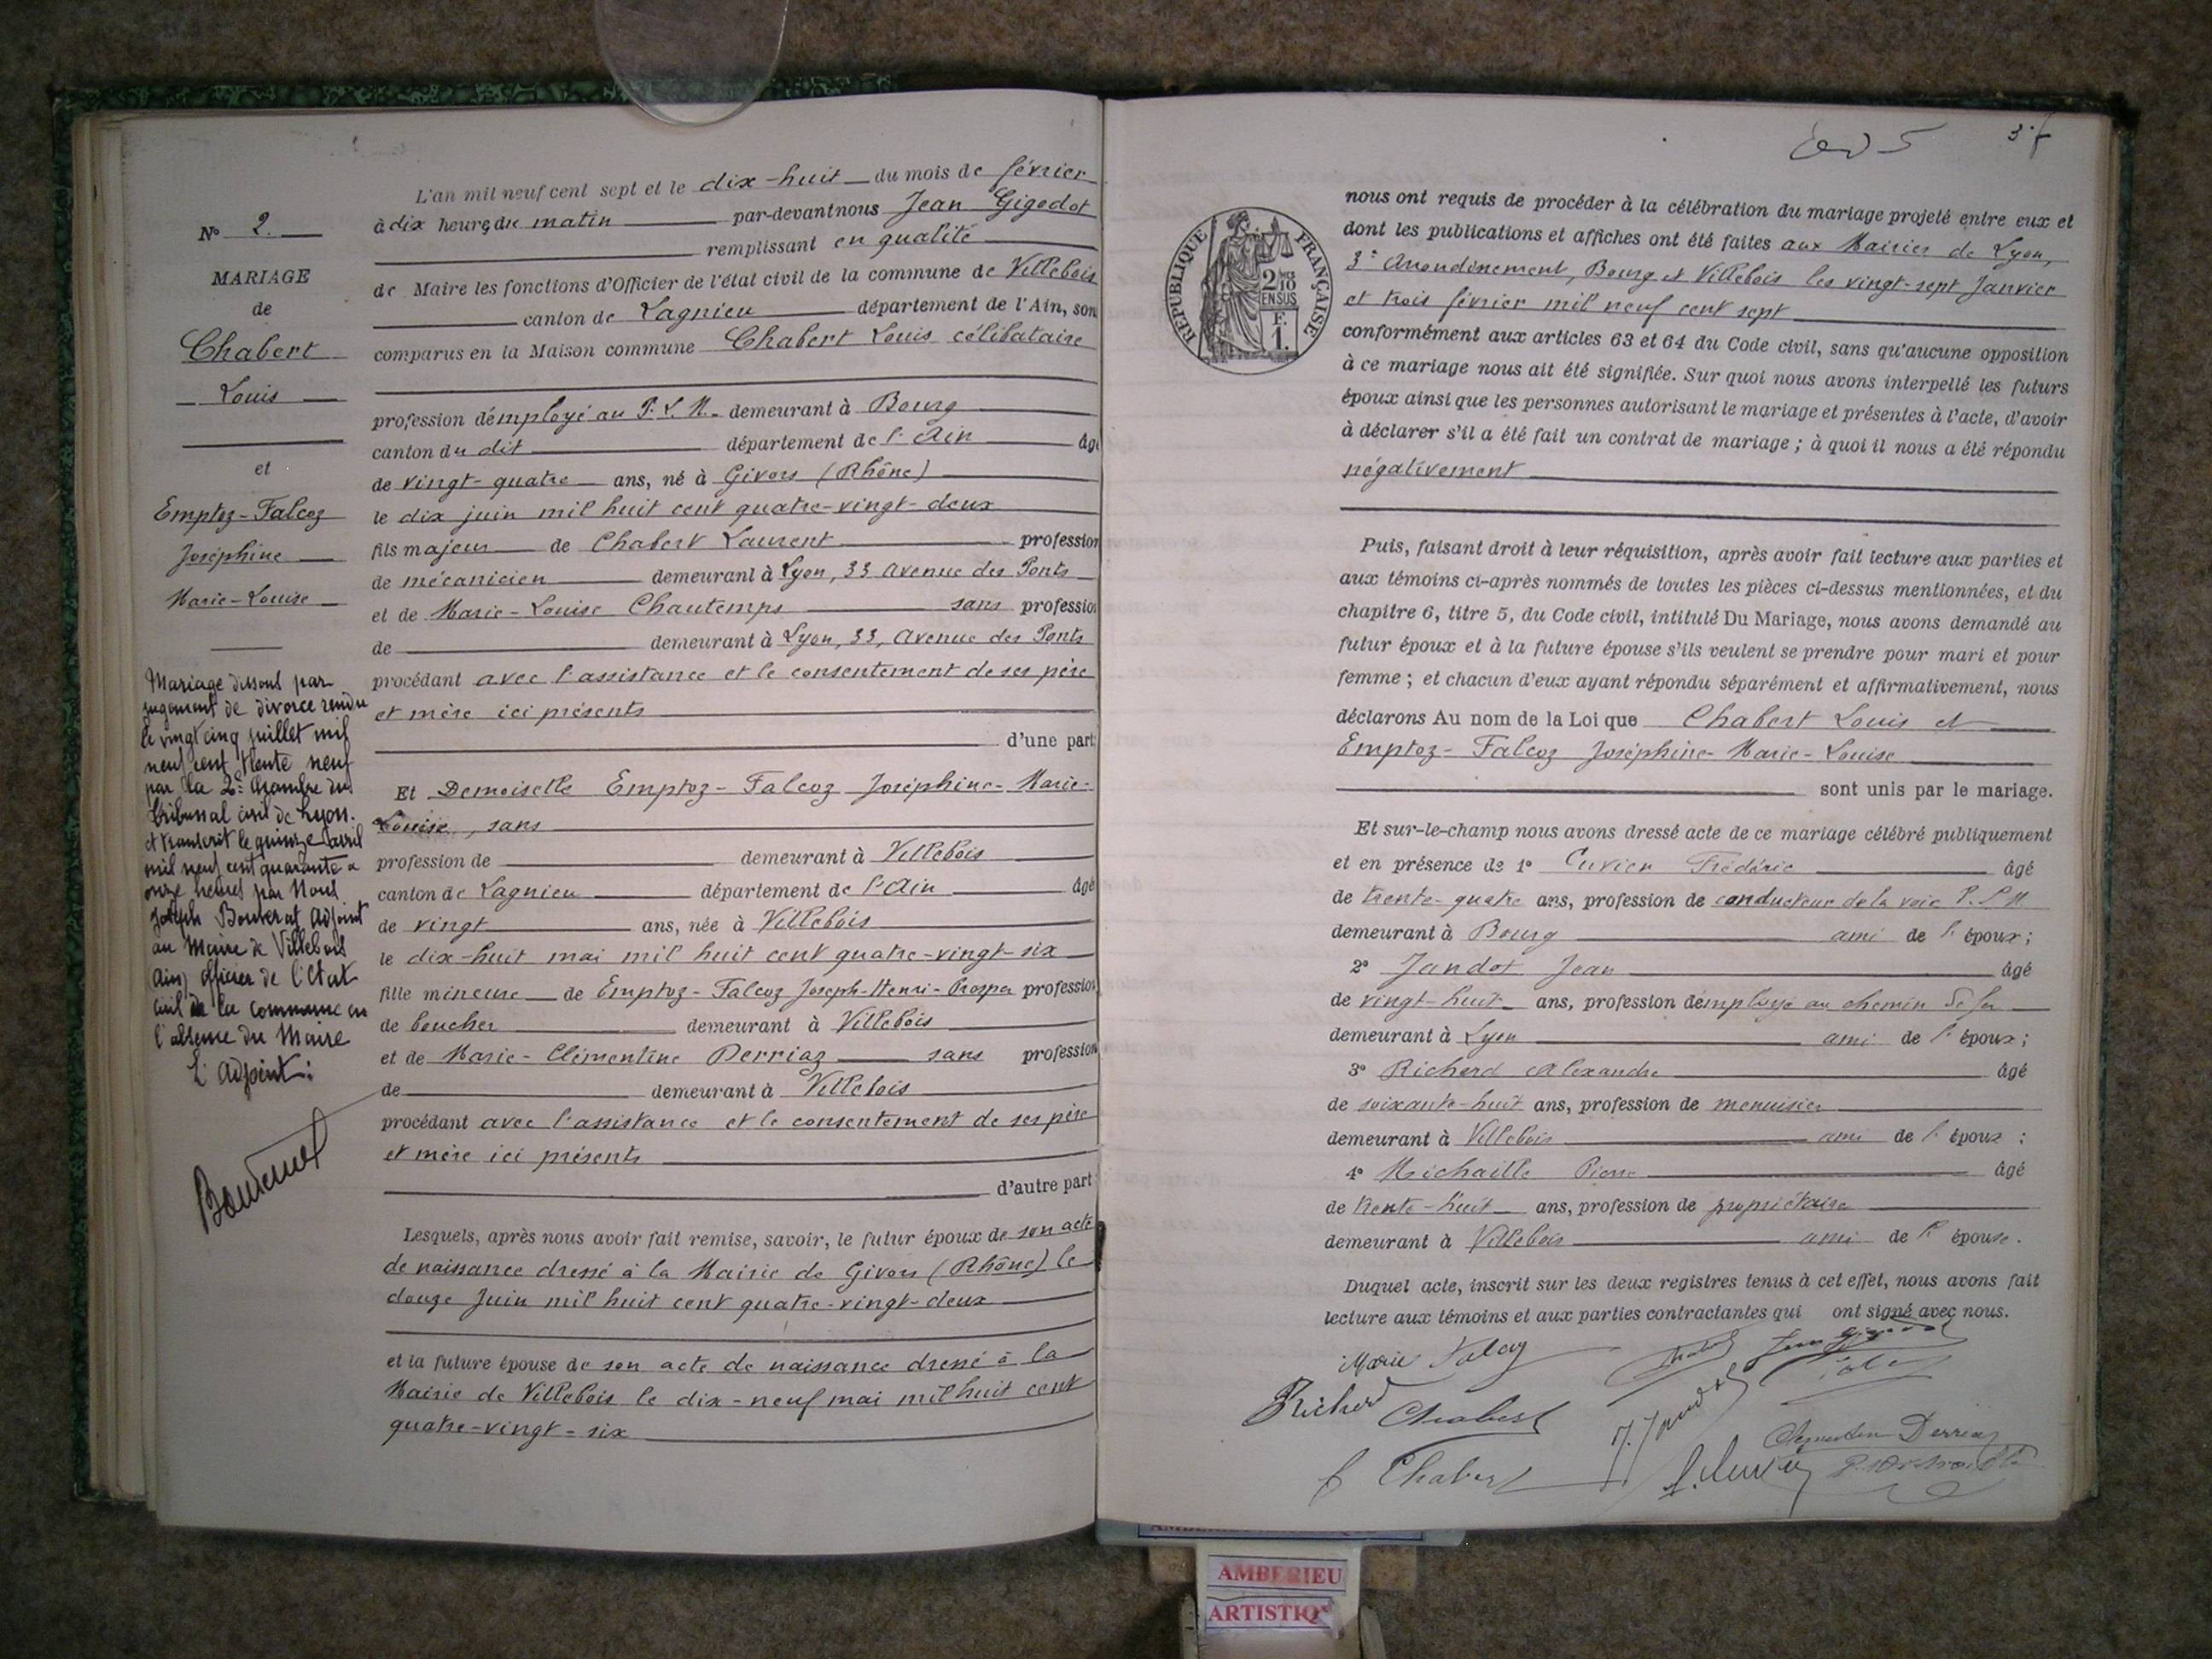 N° 2.
MARIAGE
de
Chabert
Louis
et
Emptoz-Falcoz
Joséphine
Marie-Louise
Mariage dissout par
jugement de divorce rendu
le vingt cinq juillet mil
neuf cent trente neuf
par la 2e Chambre du
tribunal civil de Lyon.
et transcrit le quinze avril
mil neuf cent quarante a
onze heures par Nous
Joseph Bouverat adjoint
au Maire de Villebois
Ain, officier de l'état
civil de la commune en
l'absence du Maire
L'adjoint :
Bouverat
L'an mil neuf cent sept et le dix-huit du mois de février
à dix heures du matin par-devant nous Jean Gigodot
remplissant en qualité
de Maire les fonctions d'Officier de l'état civil de la commune de Villebois
canton de Lagnieu département de l'Ain, son
comparus en la Maison commune Chabert Louis célibataire
profession d'employé au P. L. M. demeurant à Bourg
canton du dit département de l'Ain âgé
de vingt-quatre ans, né à Givors (Rhône)
le dix juin mil huit cent quatre-vingt-deux
fils majeur de Chabert Laurent profession
de mécanicien demeurant à Lyon, 33 Avenue des Ponts
et de Marie-Louise Chautemps sans profession
de demeurant à Lyon, 33, Avenue des Ponts
procédant avec l'assistance et le consentement de ses père
et mère ici présents
d'une part
Et Demoiselle Emptoz-Falcoz Joséphine-Marie-
Louise, sans
profession de demeurant à Villebois
canton de Lagnieu département de l'Ain âgé
de vingt ans, née à Villebois
le dix-huit mai mil huit cent quatre-vingt-six
fille mineure de Emptoz-Falcoz Joseph-Henri-Prosper profession
de boucher demeurant à Villebois
et de Marie-Clémentine Perriaz sans profession
de demeurant à Villebois
procédant avec l'assistance et le consentement de ses père
et mère ici présents
d'autre part
Lesquels, après nous avoir fait remise, savoir, le futur époux de son acte
de naissance dressé à la Mairie de Givors (Rhône) le
douze Juin mil huit cent quatre-vingt-deux
et la future épouse de son acte de naissance dressé à la
Mairie de Villebois le dix-neuf mai mil huit cent
quatre-vingt-six
RÉPUBLIQUE FRANÇAISE
2/10 EN SUS
F. 1.
nous ont requis de procéder à la célébration du mariage projeté entre eux et
dont les publications et affiches ont été faites aux Mairies de Lyon,
3e Arrondissement, Bourg et Villebois les vingt-sept Janvier
et trois février mil neuf cent sept
conformément aux articles 63 et 64 du Code civil, sans qu'aucune opposition
à ce mariage nous ait été signifiée. Sur quoi nous avons interpellé les futurs
époux ainsi que les personnes autorisant le mariage et présentes à l'acte, d'avoir
à déclarer s'il a été fait un contrat de mariage ; à quoi il nous a été répondu
négativement
Puis, faisant droit à leur réquisition, après avoir fait lecture aux parties et
aux témoins ci-après nommés de toutes les pièces ci-dessus mentionnées, et du
chapitre 6, titre 5, du Code civil, intitulé Du Mariage, nous avons demandé au
futur époux et à la future épouse s'ils veulent se prendre pour mari et pour
femme ; et chacun d'eux ayant répondu séparément et affirmativement, nous
déclarons Au nom de la Loi que Chabert Louis et
Emptoz-Falcoz Joséphine-Marie-Louise
sont unis par le mariage.
Et sur-le-champ nous avons dressé acte de ce mariage célébré publiquement
et en présence de 1° Cuvier Frédéric âgé
de trente-quatre ans, profession de conducteur de la voie P. L. M
demeurant à Bourg ami de l'époux ;
2° Jandot Jean âgé
de vingt-huit ans, profession d'employé au chemin de fer
demeurant à Lyon ami de l'époux ;
3° Richerd Alexandre âgé
de soixante-huit ans, profession de menuisier
demeurant à Villebois ami de l'époux ;
4° Michaille Pierre âgé
de trente-huit ans, profession de propriétaire
demeurant à Villebois ami de l'épouse.
Duquel acte, inscrit sur les deux registres tenus à cet effet, nous avons fait
lecture aux témoins et aux parties contractantes qui ont signé avec nous.
Marie Falcoz
Richerd Chabert
Chabert
AMBERIEU
ARTISTIQ